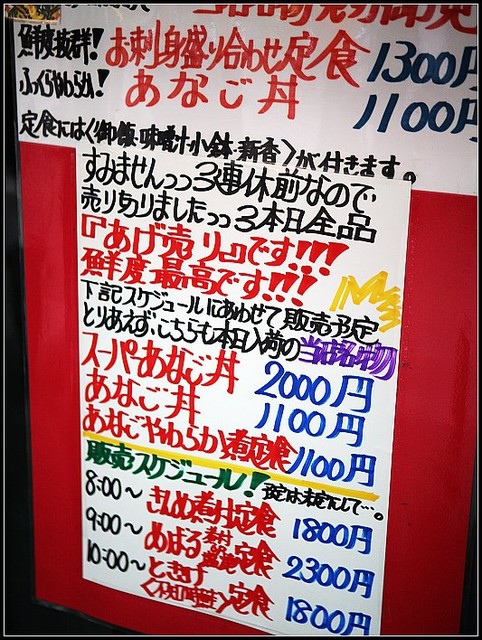 鮮度抜群!
お刺身盛り合わせ定食 1300円
ふっくらやわらか!
あなご丼 1100円
定食には〈御飯・味噌汁・小鉢・新香〉が付きます。
すみませんっっ3連休前なので
売り切りましたっっ3本日全品
『あげ売り』です!!!
鮮度最高です!!!
下記スケジュールにあわせて販売予定
とりあえず、こちらも本日入荷の当店名物
スーパーあなご丼 2000円
あなご丼 1100円
あなごやわらか煮定食 1100円
販売スケジュール!
8:00〜 きんめ煮付定食 1800円
9:00〜 めばる煮付定食 2300円
10:00〜 ときさけ定食 1800円